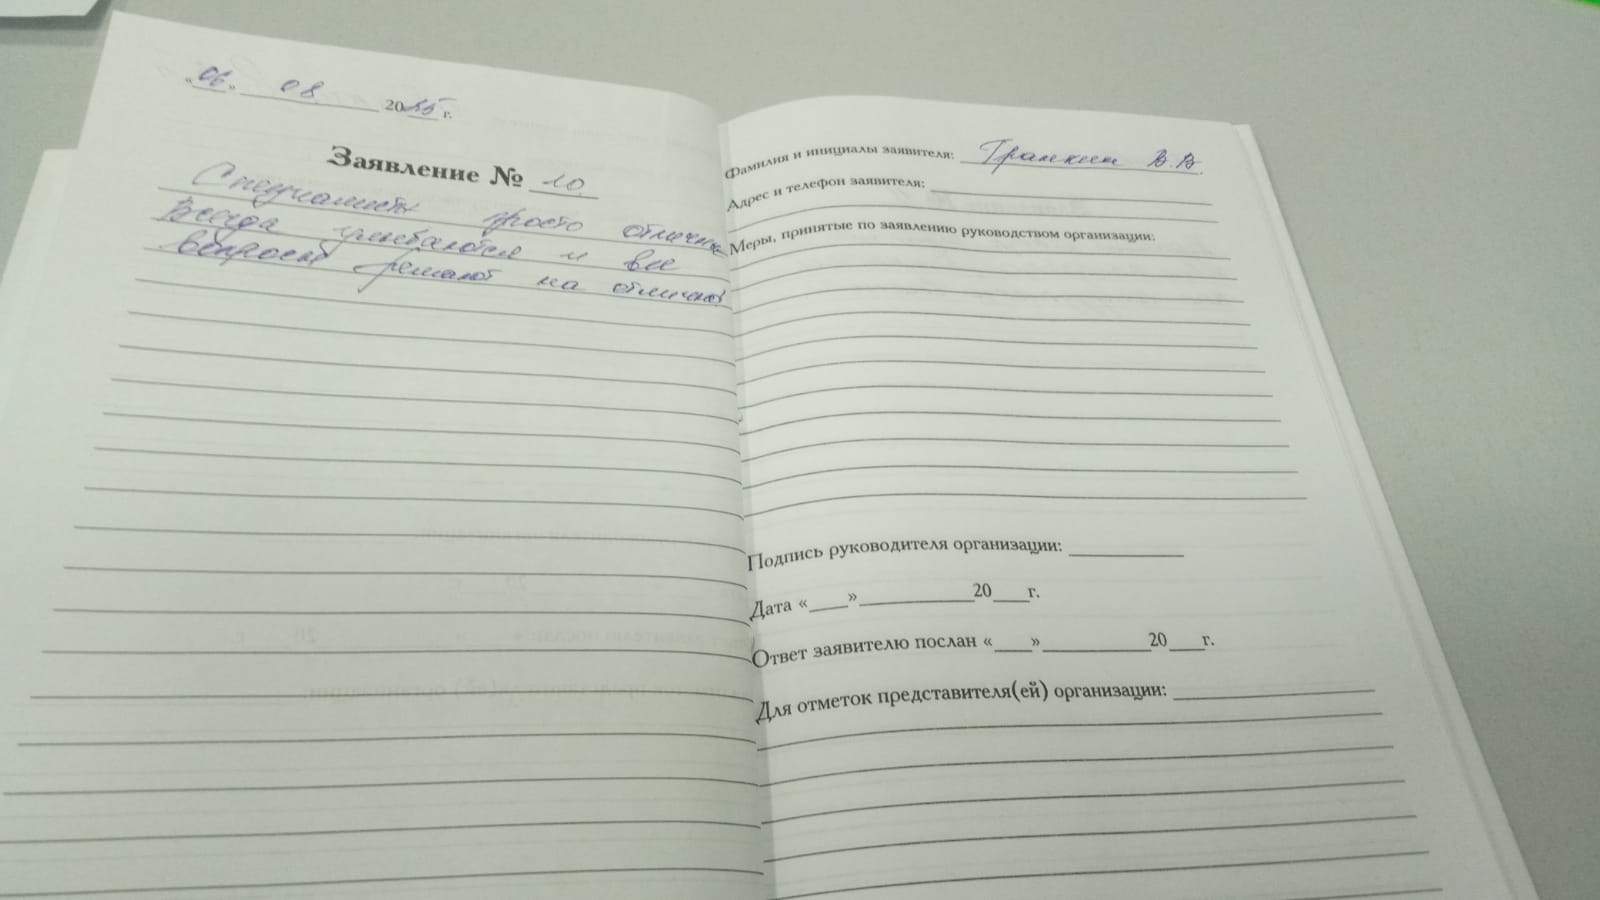 «06» 08 2025 г.
Заявление № 10
Специалисты просто отличные
Всегда улыбаются и все
вопросы решают на отлично
Фамилия и инициалы заявителя: В.В.
Адрес и телефон заявителя:
Меры, принятые по заявлению руководством организации:
Подпись руководителя организации:
Дата «____»____________20___г.
Ответ заявителю послан «____»____________20____г.
Для отметок представителя(ей) организации: